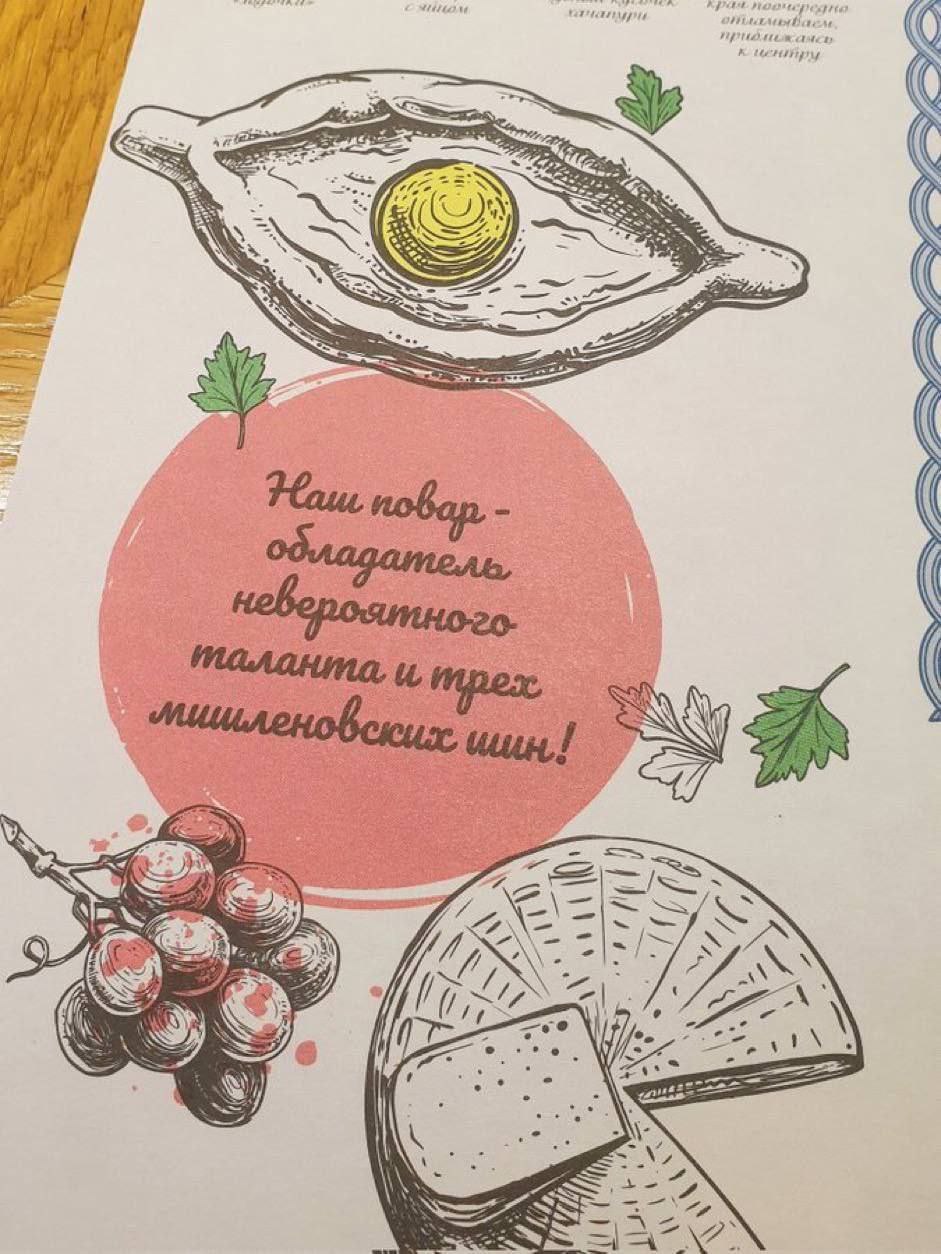 «лодочки»
с яйцом
кусочек
хачапури
края поочередно
отламываем,
приближаясь
к центру
Наш повар -
обладатель
невероятного
таланта и трех
мишленовских шин!